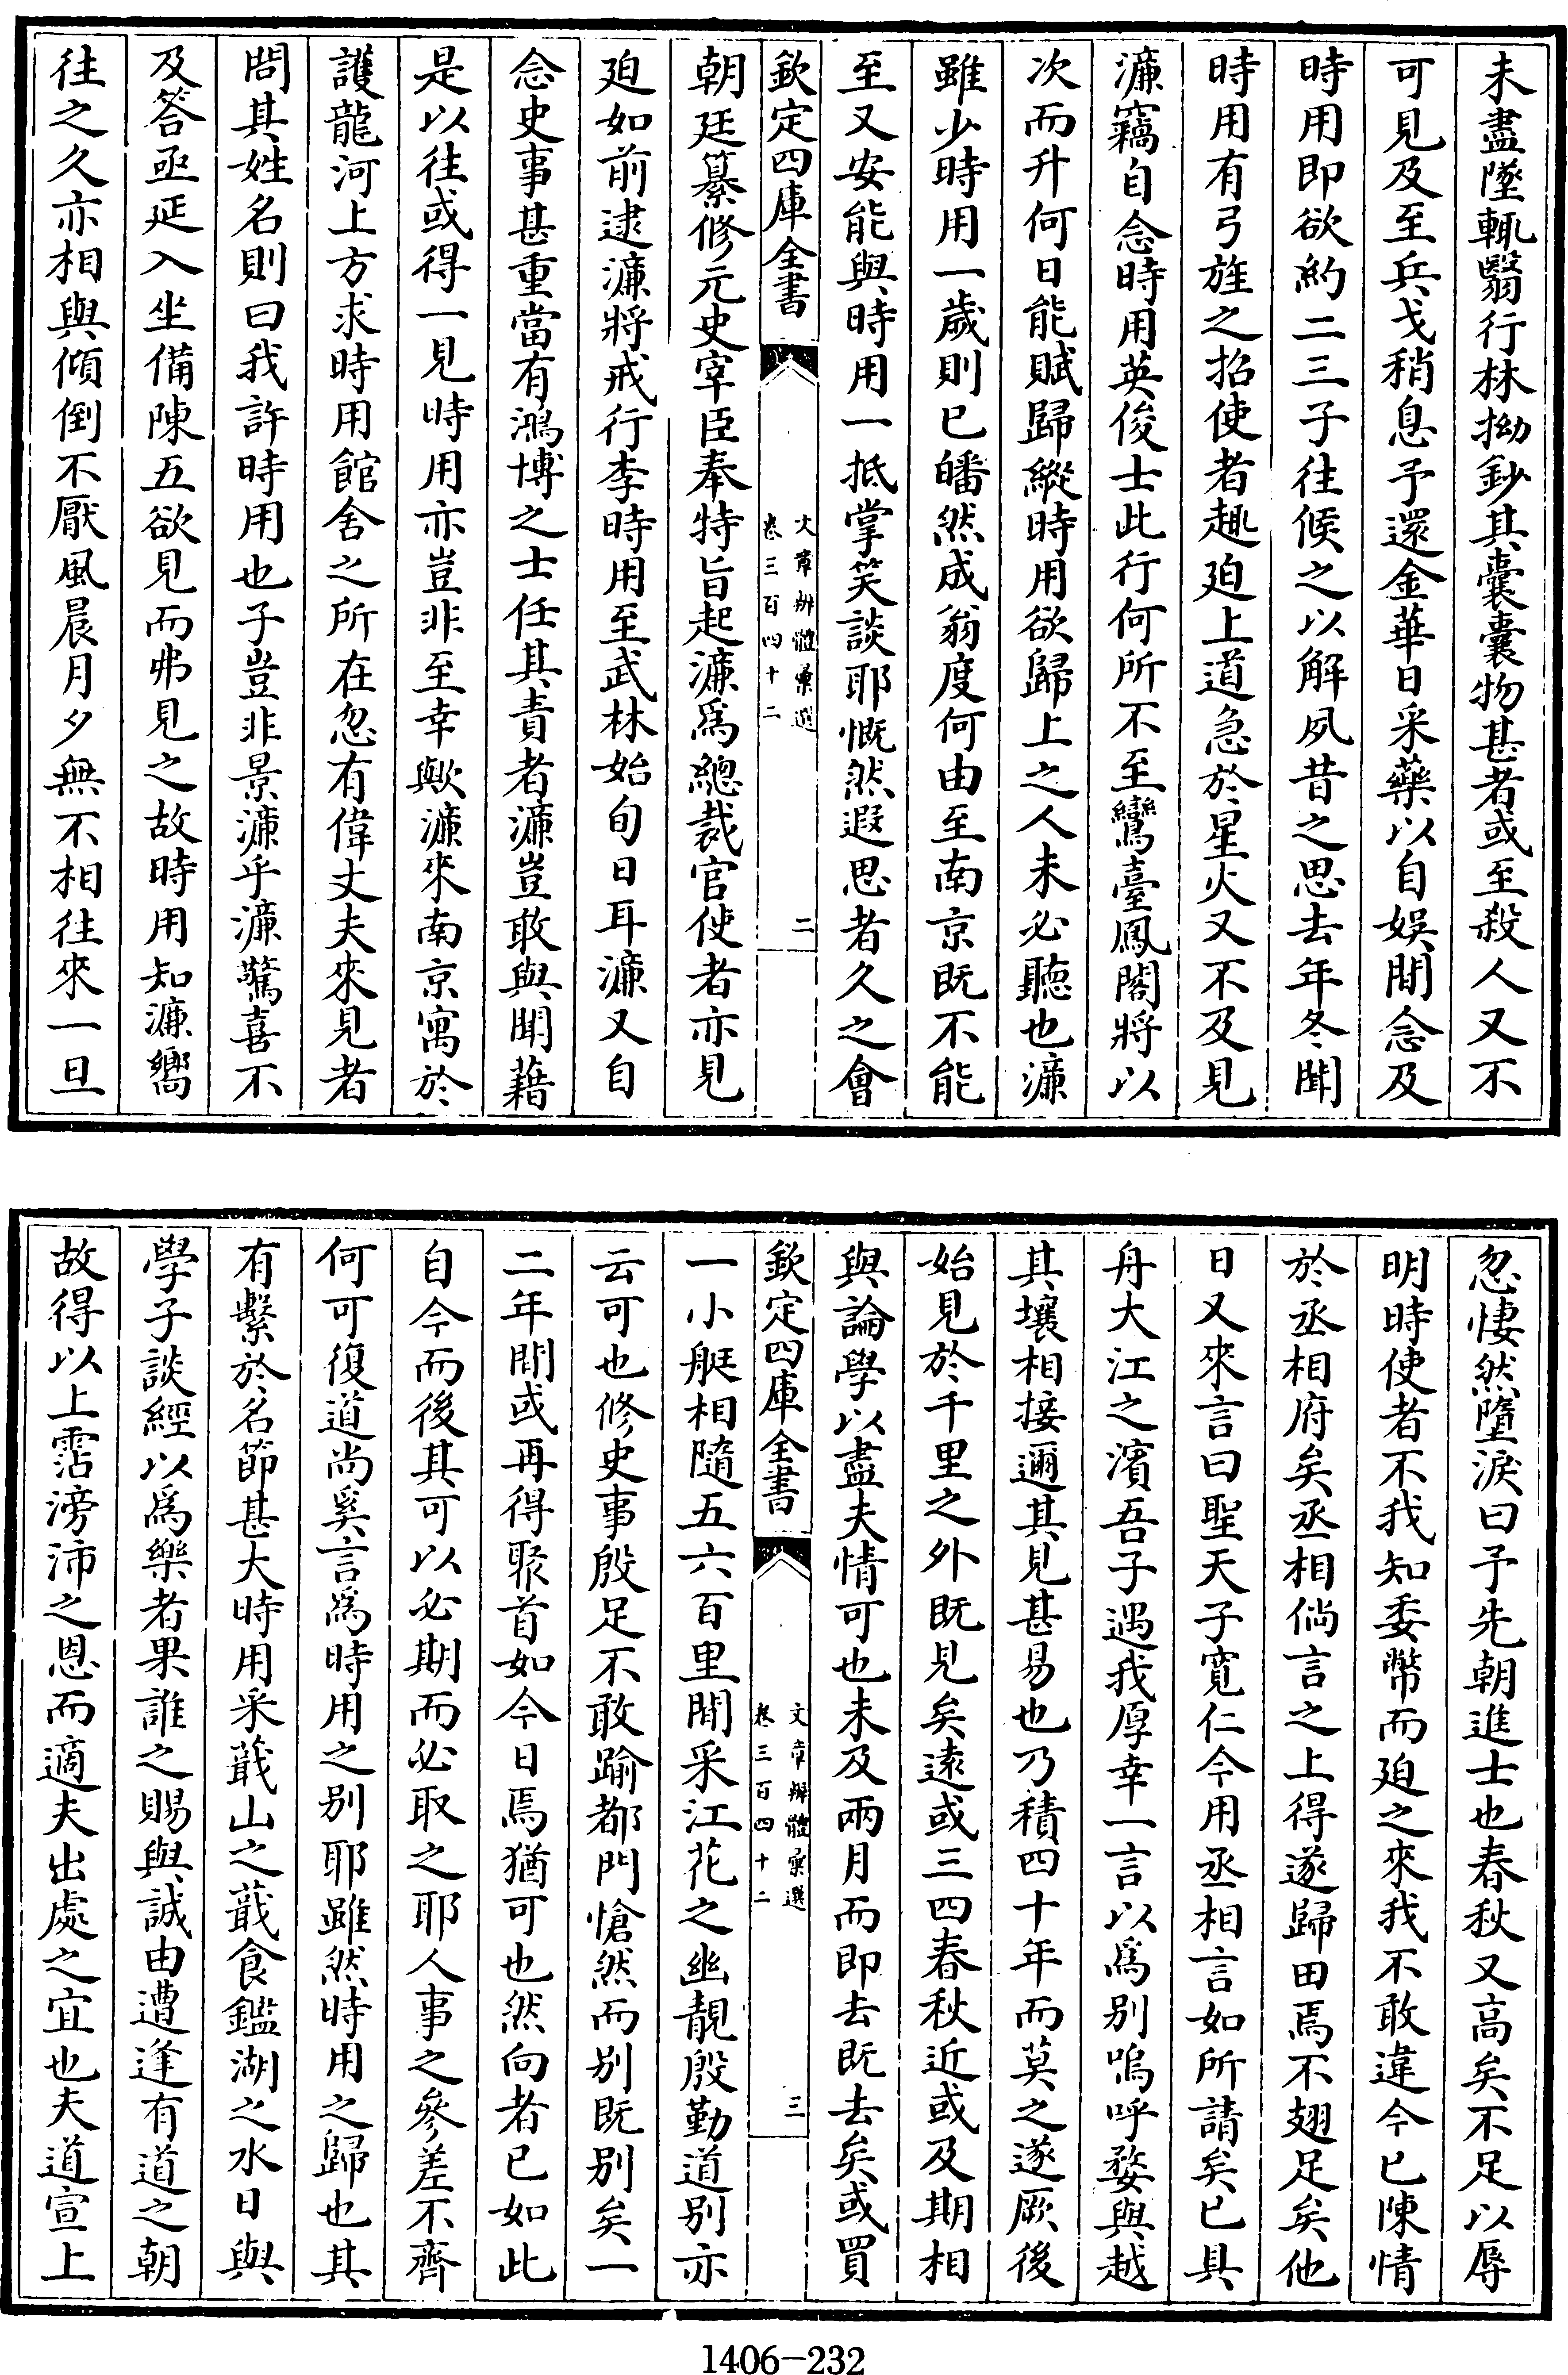 未盡墜輒翳行林拗鈔其囊囊物甚者或至殺人又不
可見及至兵戈稍息予還金華日采藥以自娛閒念及
時用即欲約二三子往候之以解夙昔之思去年冬聞
時用有弓旌之招使者趣迫上道急於星火又不及見
濂竊自念時用英俊士此行何所不至鸞臺鳳閣將以
次而升何日能賦歸縱時用欲歸上之人未必聽也濂
雖少時用一歲則已皤然成翁度何由至南京既不能
至又安能與時用一抵掌笑談耶慨然遐思者久之會
欽定四庫全書
文章辨體彙選
卷三百四十二
二
朝廷纂修元史宰臣奉特旨起濂爲總裁官使者亦見
迫如前逮濂將戒行李時用至武林始旬日耳濂又自
念史事甚重當有鴻博之士任其責者濂豈敢與聞藉
是以往或得一見時用亦豈非至幸歟濂來南京寓於
護龍河上方求時用館舍之所在忽有偉丈夫來見者
問其姓名則曰我許時用也子豈非景濂乎濂驚喜不
及答亟延入坐備陳五欲見而弗見之故時用知濂嚮
往之久亦相與傾倒不厭風晨月夕無不相往來一旦
忽悽然墮淚曰予先朝進士也春秋又高矣不足以辱
明時使者不我知委幣而迫之來我不敢違今已陳情
於丞相府矣丞相倘言之上得遂歸田焉不翅足矣他
日又來言曰聖天子寬仁今用丞相言如所請矣已具
舟大江之濱吾子遇我厚幸一言以爲別嗚呼婺與越
其壤相接邇其見甚易也乃積四十年而莫之遂厥後
始見於千里之外既見矣遠或三四春秋近或及期相
與論學以盡夫情可也未及兩月而即去既去矣或買
欽定四庫全書
文章辨體彙選
卷三百四十二
三
一小艇相隨五六百里閒采江花之幽靚殷勤道別亦
云可也修史事殷足不敢踰都門愴然而別既別矣一
二年閒或再得聚首如今日焉猶可也然向者已如此
自今而後其可以必期而必取之耶人事之參差不齊
何可復道尚奚言爲時用之別耶雖然時用之歸也其
有繫於名節甚大時用采蕺山之蕺食鑑湖之水日與
學子談經以爲樂者果誰之賜與誠由遭逢有道之朝
故得以上霑滂沛之恩而適夫出處之宜也夫道宣上
1406-232